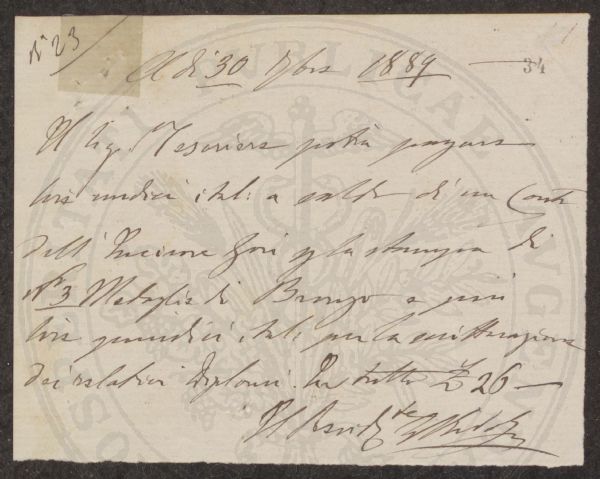 N° 23
34
A dì 30 7bre 1889
Il Sigr Tesoriere potrà pagare
lire undici ital: a saldo di un Conto
dell' Incisore Zori p la stampa di
N° 3 Medaglie di Bronzo e più
lire quindici ital: per la scritturazione
dei relativi Diplomi. In tutto £ 26 —
Il Presidte